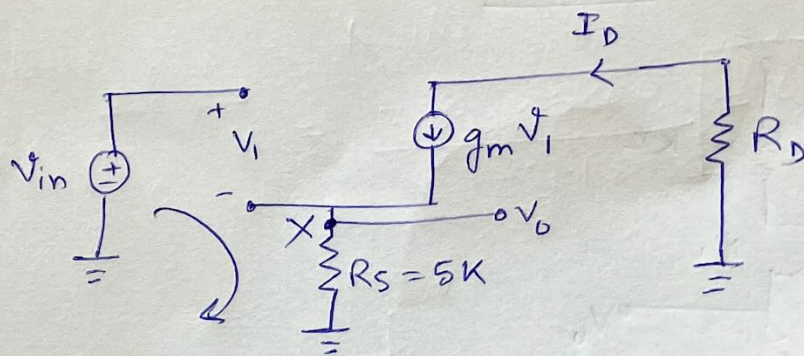 I_D
+
V_1
-
v_in
+
-
g_m v_1
R_D
X
v_o
R_S = 5K